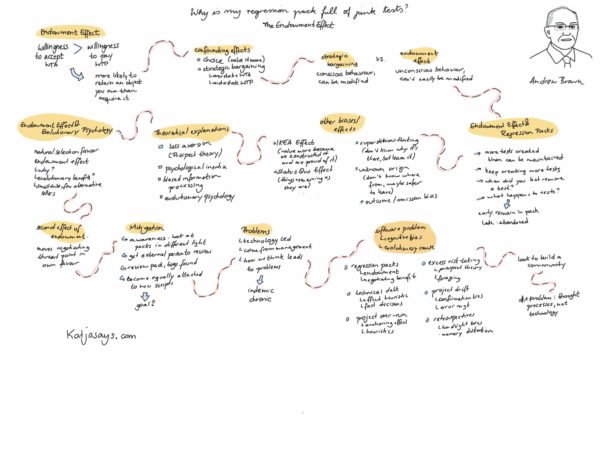 Why is my regression pack full of junk tests?
The Endowment Effect
Andrew Brown
Endowment Effect
willingness to accept WTA > willingness to pay WTP
more likely to retain an object you own than acquire it
confounding effects
choice (value if same)
strategic bargaining
understate WTP
strategic bargaining
conscious behaviour,
can be modified
vs.
endowment effect
unconscious behaviour,
can't easily be modified
Endowment Effect &
Evolutionary Psychology
natural selection favor
endowment effect
why?
evolutionary benefit
substitute for alternative
Theoretical explanations
loss aversion
(prospect theory)
psychological inertia
biased information
processing
evolutionary psychology
other biases/
effects
IKEA Effect
(value more because
we constructed it
and are proud of it)
Status Quo Effect
(things remaining as
they are)
superstitious thinking
(don't know why it's
there, but leave it)
unknown origin
(don't know where
from, maybe safer
to leave)
outcome / omission bias
Endowment Effect &
Regression Packs
more tests created
than can be maintained
keep creating more tests
when did you last remove
a test?
what happens to tests?
early: remain in pack
late: abandoned
second effect of
endowment
moves negotiating
threat point in
own favour
Mitigation
awareness: look at
packs in different light
get external person to review
review pack, bugs found
become equally attached
to new scripts
goal?
Problems
technology led
come from management
how we think leads
to problems
indemic
chronic
software problem
cognitive bias
evolutionary cause
regression packs
endowment
negotiating benefit
technical debt
affect heuristic
fast decisions
project over-run
anchoring effect
heuristics
excess risk-taking
prospect theory
foraging
project drift
confirmation bias
error mgt
retrospectives
hindsight bias
memory distortion
look to build a
community
problem: thought
processes, not
technology
Katjasays.com